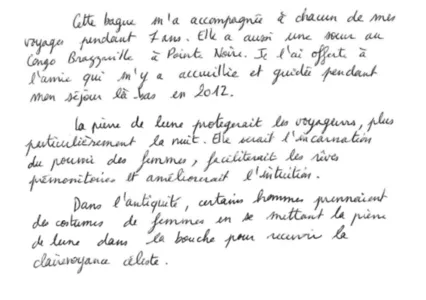 Cette bague m'a accompagnée à chacun de mes
voyages pendant 7 ans. Elle a aussi une sœur au
Congo Brazzaville à Pointe Noire. Je l'ai offerte à
l'amie qui m'y a accueillie et guidée pendant
mon séjour là-bas en 2012.
La pierre de lune protègerait les voyageurs, plus
particulièrement la nuit. Elle serait l'incarnation
du pouvoir des femmes, faciliterait les rêves
prémonitoires et améliorerait l'intuition.
Dans l'antiquité, certains hommes prennaient
des costumes de femmes en se mettant la pierre
de lune dans la bouche pour recevoir la
clairevoyance céleste.